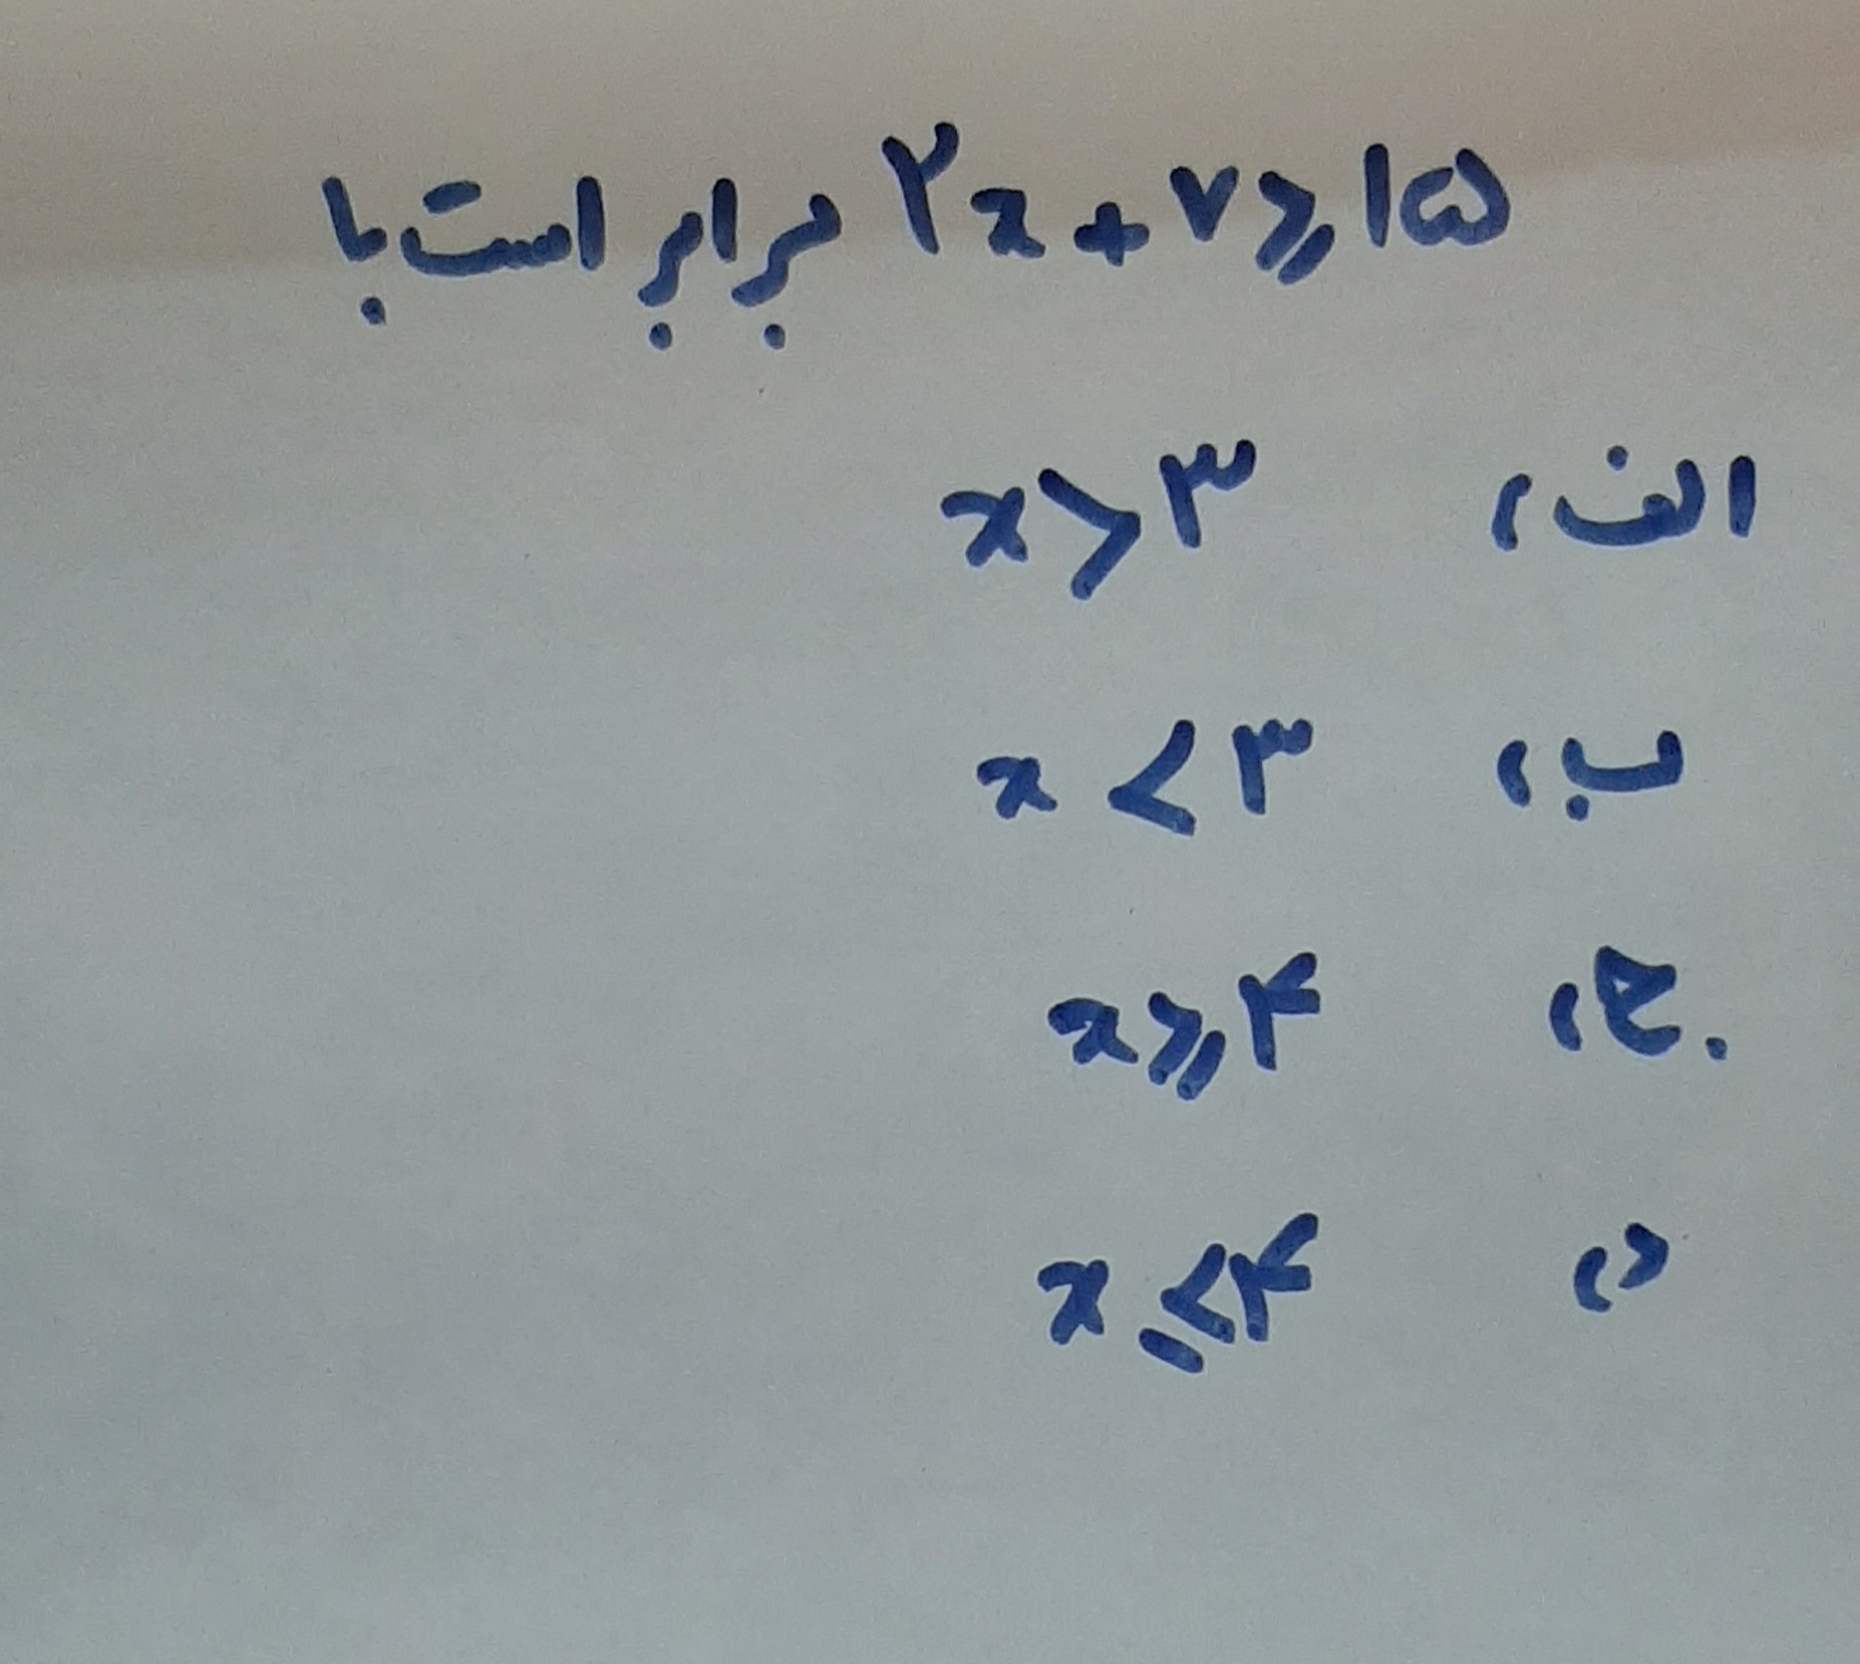 ۲x + ۷ ⩾ ۱۵ برابر است با
الف، x > ۳
ب، x < ۳
ج، x ⩾ ۴
د، x ≤ ۴